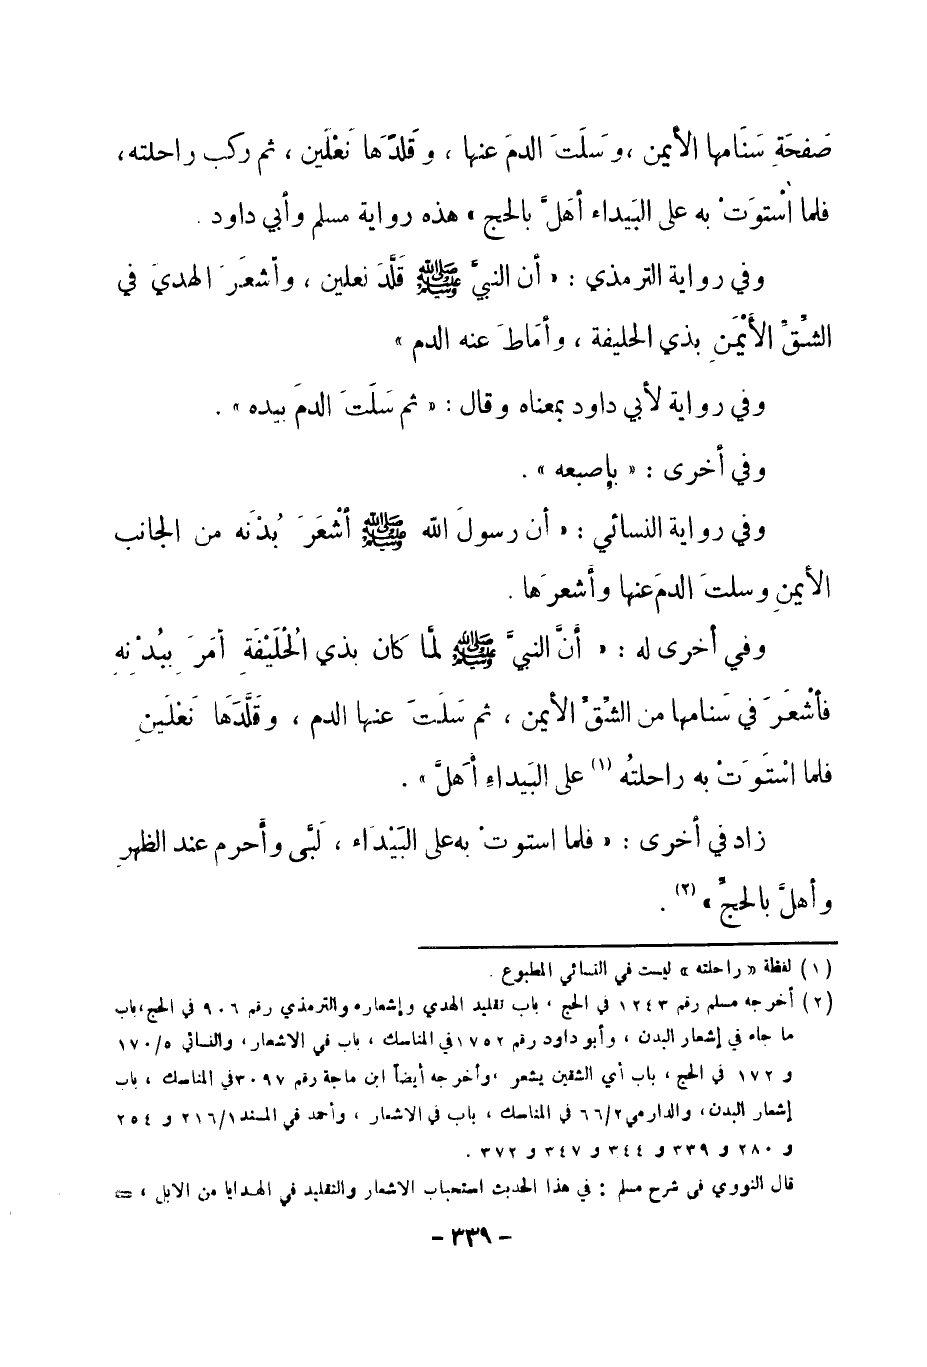 صَفحَةِ سَنَامها الأيمن ،وَسلَتَ الدمَ عنها ، وقَلدَّها نَعْلَين ، ثم ركب راحلته،
فلما اسْتوَتْ به على البَيداء أهَلَّ بالحج » هذه رواية مسلم وأبي داود .
وفي رواية الترمذي : « أن النبيَّ ﷺ قَلَّدَ نعلين ، وأشعَرَ الهديَ في
الشِّقِّ الأيْمَنِ بذي الحليفة ، وأمَاطَ عنه الدم »
وفي رواية لأبي داود بمعناه وقال : « ثم سَلَتَ الدمَ بيده » .
وفي أخرى : « بإصبعه » .
وفي رواية النسائي : « أن رسولَ الله ﷺ أشْعَرَ بُدْنَه من الجانب
الأيمنِ وسلتَ الدمَ عنها وأشعرَها .
وفي أخرى له : « أنَّ النبيَّ ﷺ لمَّا كان بذي الحُلَيْفَةِ أمَرَ بِبُدْنِهِ
فأشْعَرَ في سَنامها من الشِّقِّ الأيمن ، ثم سَلَتَ عنها الدم ، وقَلَّدَها نَعْلَينِ
فلما اسْتَوَتْ به راحلتُه (١) على البَيداءِ أهَلَّ » .
زاد في أخرى : « فلما استوتْ به على البَيْدَاء ، لَبَّى وأَحرم عند الظهرِ
وأهلَّ بالحجِّ » (٢) .
(١) لفظة « راحلته » ليست في النسائي المطبوع .
(٢) أخرجه مسلم رقم ١٢٤٣ في الحج ، باب تقليد الهدي وإشعاره والترمذي رقم ٩٠٦ في الحج،باب
ما جاء في إشعار البدن ، وأبو داود رقم ١٧٥٢في المناسك ، باب في الاشعار، والنسائي ١٧٠/٥
و ١٧٢ في الحج ، باب أي الشقين يشعر ،وأخرجه أيضاً ابن ماجة رقم ٣٠٩٧في المناسك ، باب
إشعار البدن، والدارمي٦٦/٢ في المناسك ، باب في الاشعار ، وأحمد في المسند٢١٦/١ و ٢٥٤
و ٢٨٠ و ٣٣٩ و ٣٤٤ و ٣٤٧ و ٣٧٢ .
قال النووي في شرح مسلم : في هذا الحديث استحباب الاشعار والتقليد في الهدايا من الابل ، =
- ٣٣٩ -